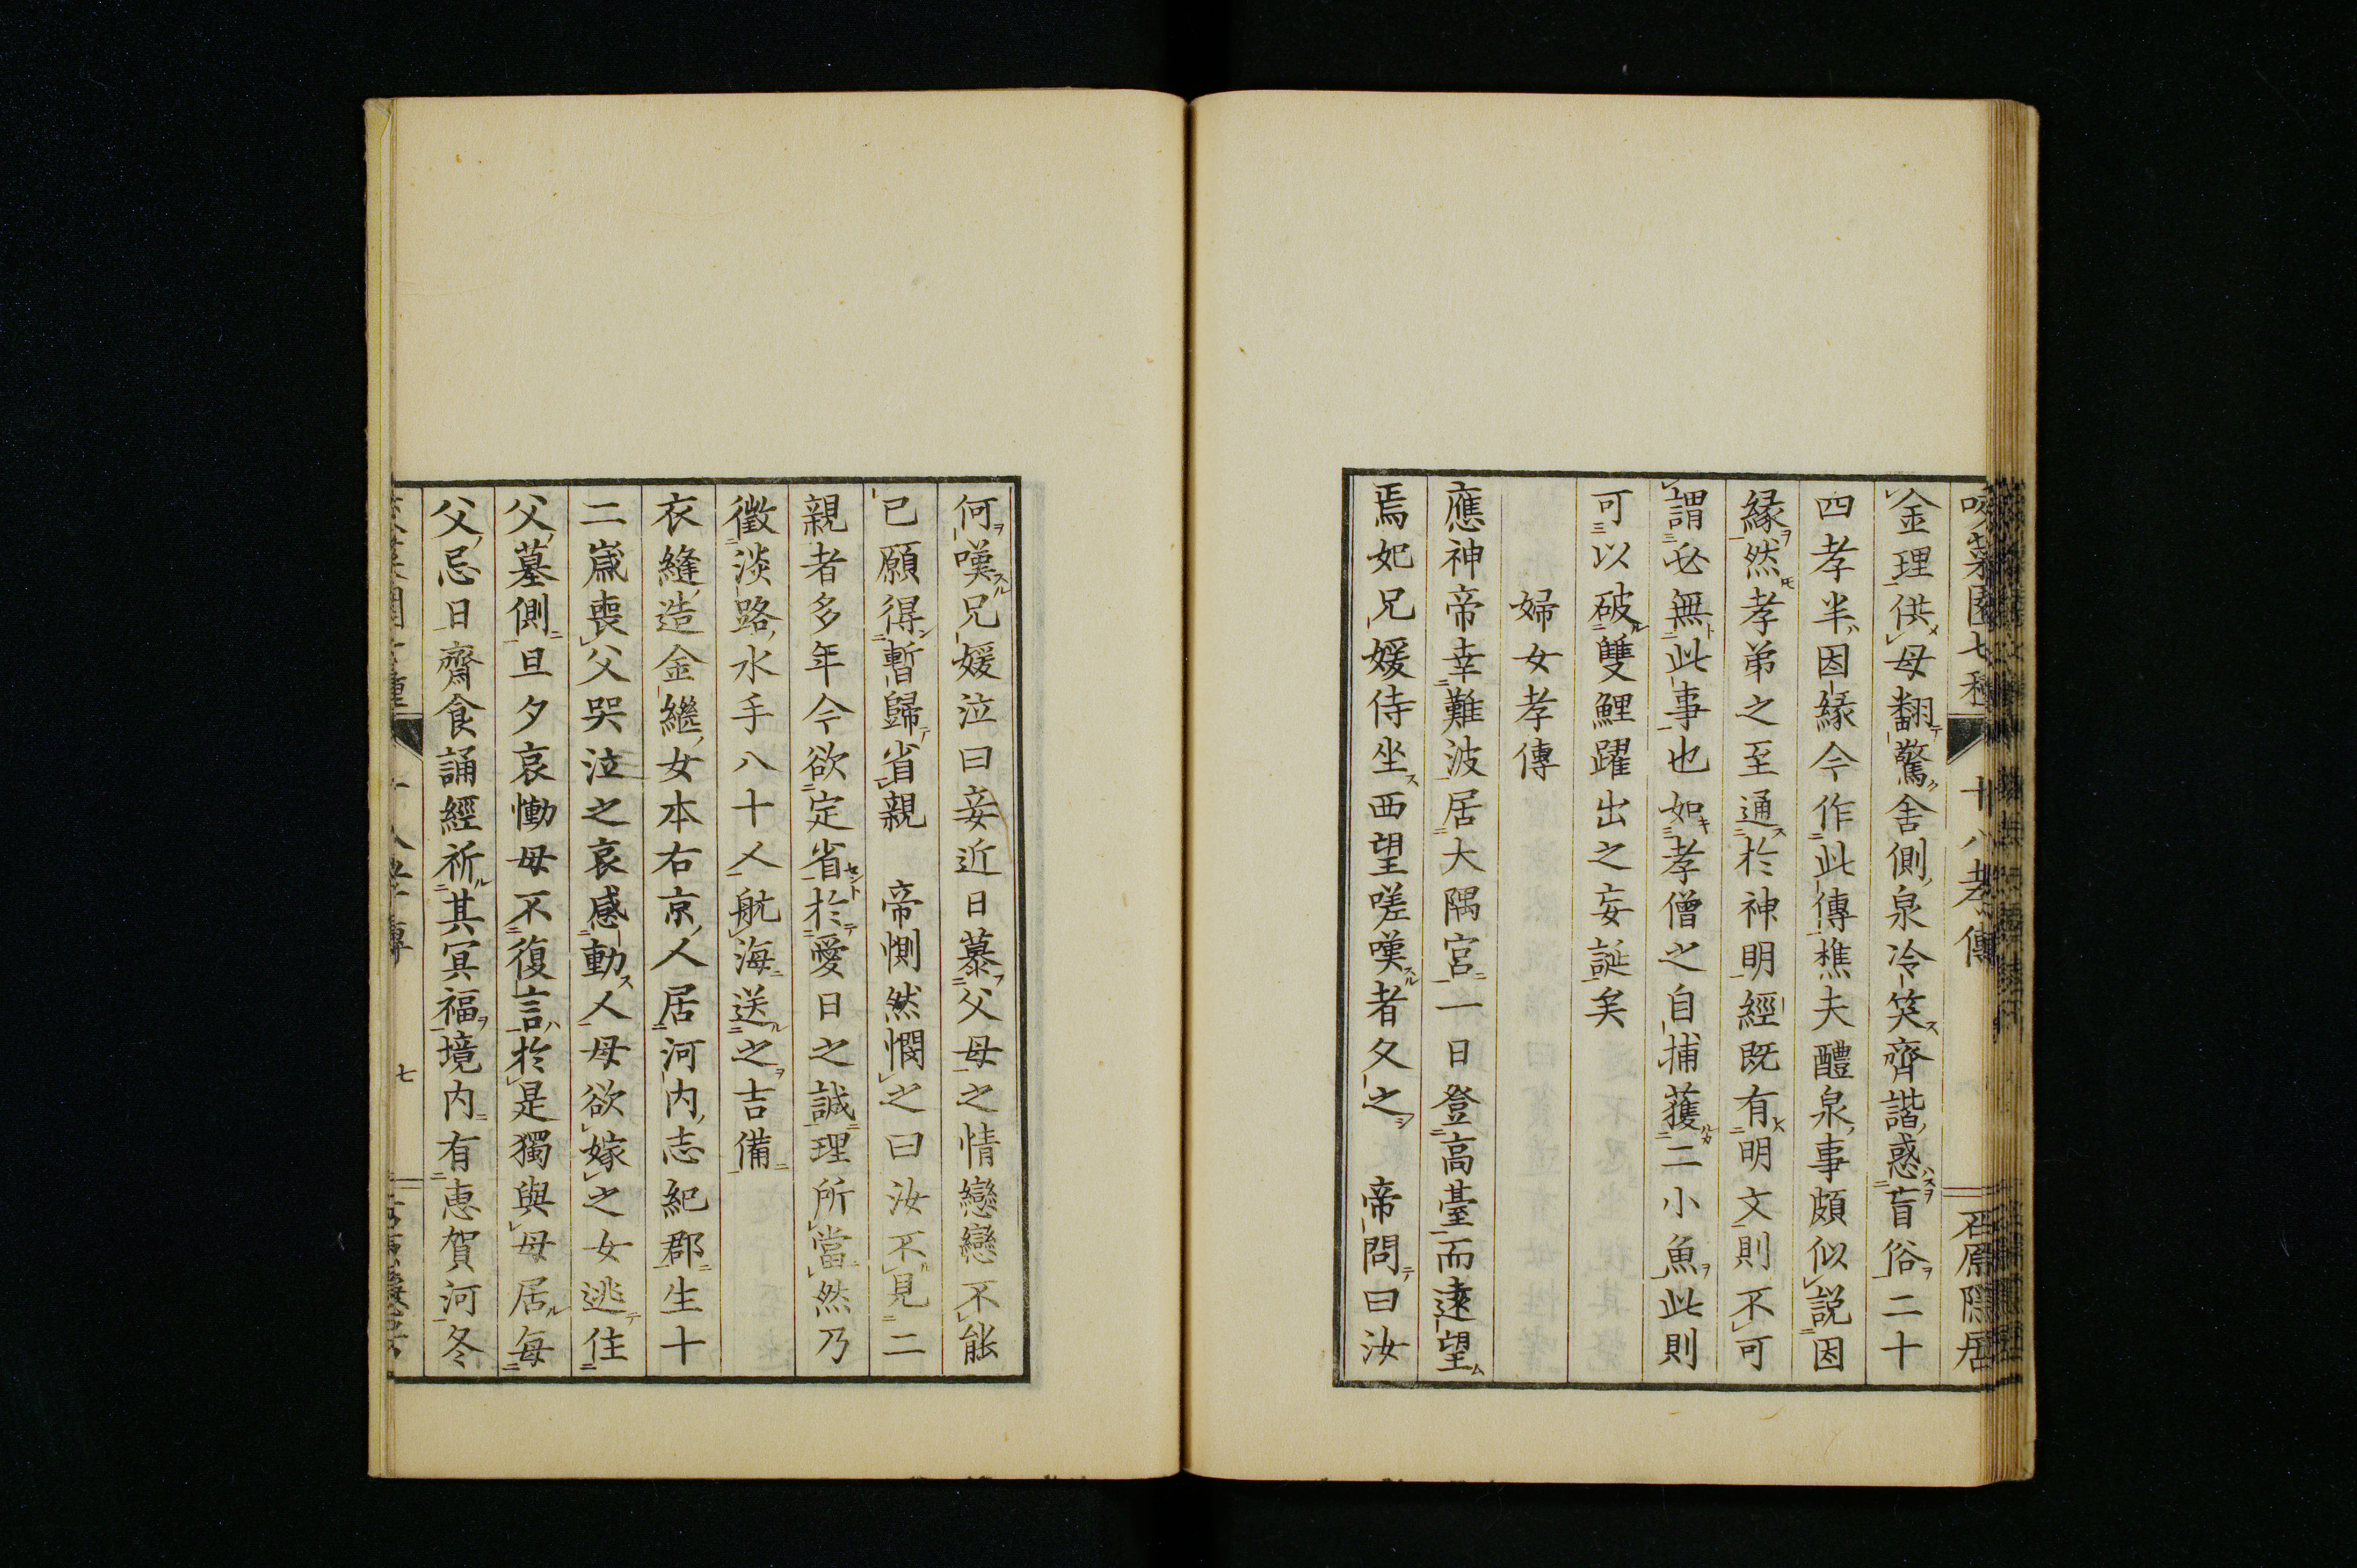 十八孝傳
石原隱居
金理供母翻驚舍側泉冷笑齊諧惑盲俗二十
四孝半因緣今作此傳樵夫醴泉事頗似説因
緣然孝弟之至通於神明經既有明文則不可
謂必無此事也如孝僧之自捕獲二小魚此則
可以破雙鯉躍出之妄誕矣
婦女孝傳
應神帝幸難波居大隅宮一日登高臺而遠望
焉妃兄媛侍坐西望嗟嘆者久之　帝問曰汝
何嘆兄媛泣曰妾近日慕父母之情戀戀不能
已願得暫歸省親　帝惻然憫之曰汝不見二
親者多年今欲定省於愛日之誠理所當然乃
徵淡路水手八十人航海送之吉備
衣縫造金繼女本右京人居河内志紀郡生十
二歳喪父哭泣之哀感動人母欲嫁之女逃住
父墓側旦夕哀慟母不復言於是獨與母居每
父忌日齋食誦經祈其冥福境内有惠賀河冬
七